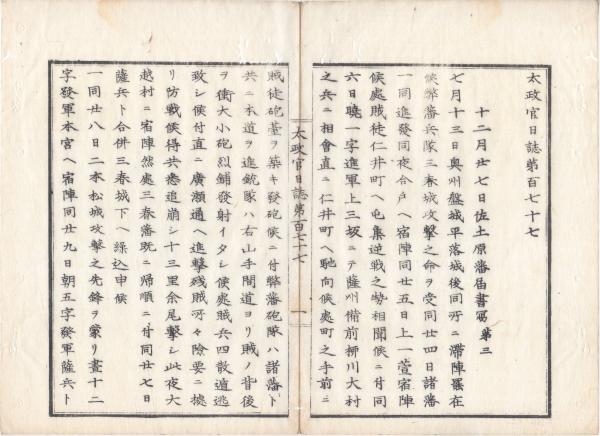 太政官日誌第百七十七
十二月廿七日佐土原藩届書冩 第三
七月十三日奥州盤城平落城後同所ニ滞陣罷在
候弊藩兵隊三春城攻撃之命ヲ受同廿四日諸藩
一同進發同夜合戸ヘ宿陣同廿五日上一萱宿陣
候處賊徒仁井町ヘ屯集逆戦之勢相聞候ニ付同
六日曉一字進軍上三坂ニテ薩州備前柳川大村
之兵ニ相會直ニ仁井町ヘ馳向候處町之手前ニ
太政官日誌第百七十七 一
賊徒砲臺ヲ築キ發砲候ニ付弊藩砲隊ハ諸藩ト
共ニ本道ヲ進銃隊ハ右山手間道ヨリ賊ノ背後
ヲ衝大小砲烈鋪發射イタシ候處賊兵四散遁逃
致シ候付直ニ廣瀬通ヘ進撃残賊所々險要ニ據
リ防戦候得共悉追崩シ十三里余尾撃シ此夜大
越村ニ宿陣然處三春藩既ニ帰順ニ付同廿七日
薩兵ト合併三春城下ヘ繰込申候
一同廿八日二本松城攻撃之先鋒ヲ蒙リ晝十二
字發軍本宮ヘ宿陣同廿九日朝五字發軍薩兵ト